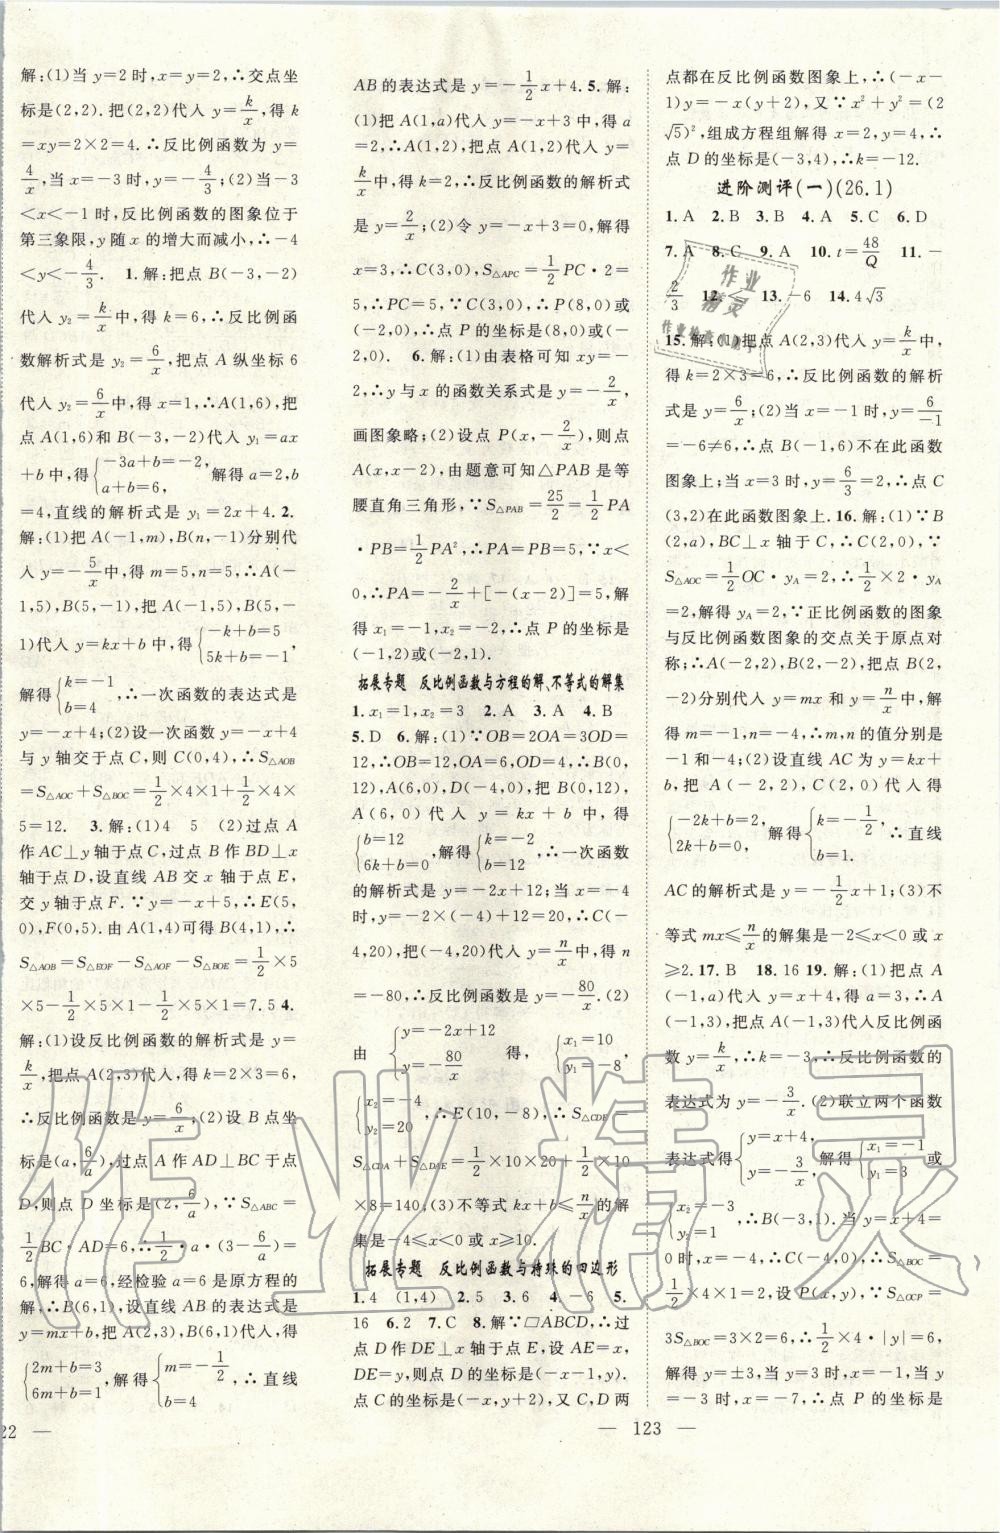 解:(1)当 y=2 时,x=y=2,∴交点坐
标是(2,2).把(2,2)代入 y=k/x,得 k
=xy=2×2=4.∴反比例函数为 y=
4/x,当 x=-3 时,y=-4/3;(2)当-3
<x<-1 时,反比例函数的图象位于
第三象限,y 随 x 的增大而减小,∴-4
<y<-4/3. 1.解:把点 B(-3,-2)
代入 y₂=k/x中,得 k=6,∴反比例函
数解析式是 y₂=6/x,把点 A 纵坐标 6
代入 y₂=6/x中,得 x=1,∴A(1,6),把
点 A(1,6)和 B(-3,-2)代入 y₁=ax
+b 中,得{-3a+b=-2, a+b=6, 解得 a=2,b
=4,直线的解析式是 y₁=2x+4. 2.
解:(1)把 A(-1,m),B(n,-1)分别代
入 y=-5/x中,得 m=5,n=5,∴A(-
1,5),B(5,-1),把 A(-1,5),B(5,-
1)代入 y=kx+b 中,得{-k+b=5 5k+b=-1,
解得{k=-1 b=4,∴一次函数的表达式是
y=-x+4;(2)设一次函数 y=-x+4
与 y 轴交于点 C,则 C(0,4),∴S△AOB
=S△AOC+S△BOC=1/2×4×1+1/2×4×
5=12. 3.解:(1)4 5 (2)过点 A
作 AC⊥y 轴于点 C,过点 B 作 BD⊥x
轴于点 D,设直线 AB 交 x 轴于点 E,
交 y 轴于点 F.∵y=-x+5,∴E(5,
0),F(0,5).由 A(1,4)可得 B(4,1),∴
S△AOB=S△EOF-S△AOF-S△BOE=1/2×5
×5-1/2×5×1-1/2×5×1=7.5 4.
解:(1)设反比例函数的解析式是 y=
k/x,把点 A(2,3)代入,得 k=2×3=6,
∴反比例函数是 y=6/x;(2)设 B 点坐
标是(a,6/a),过点 A 作 AD⊥BC 于点
D,则点 D 坐标是(2,6/a),∵S△ABC=
1/2BC·AD=6,∴1/2·a·(3-6/a)=
6,解得 a=6,经检验 a=6 是原方程的
解,∴B(6,1),设直线 AB 的表达式是
y=mx+b,把 A(2,3),B(6,1)代入,得
{2m+b=3 6m+b=1,解得{m=-1/2, b=4 ∴直线
22 —
AB 的表达式是 y=-1/2x+4. 5.解:
(1)把点 A(1,a)代入 y=-x+3 中,得 a
=2,∴A(1,2),把点 A(1,2)代入 y=
k/x中,得 k=2,∴反比例函数的解析式
是 y=2/x;(2)令 y=-x+3=0,解得
x=3,∴C(3,0),S△APC=1/2PC·2=
5,∴PC=5,∵C(3,0),∴P(8,0)或
(-2,0),∴点 P 的坐标是(8,0)或(-
2,0). 6.解:(1)由表格可知 xy=-
2,∴y 与 x 的函数关系式是 y=-2/x,
画图象略;(2)设点 P(x,-2/x),则点
A(x,x-2),由题意可知△PAB 是等
腰直角三角形,∵S△PAB=25/2=1/2PA
·PB=1/2PA²,∴PA=PB=5,∵x<
0,∴PA=-2/x+[-(x-2)]=5,解
得 x₁=-1,x₂=-2,∴点 P 的坐标是
(-1,2)或(-2,1).
拓展专题 反比例函数与方程的解、不等式的解集
1.x₁=1,x₂=3 2.A 3.A 4.B
5.D 6.解:(1)∵OB=2OA=3OD=
12,∴OB=12,OA=6,OD=4,∴B(0,
12),A(6,0),D(-4,0),把 B(0,12),
A(6,0)代入 y=kx+b 中,得
{b=12 6k+b=0,解得{k=-2 b=12,∴一次函数
的解析式是 y=-2x+12;当 x=-4
时,y=-2×(-4)+12=20,∴C(-
4,20),把(-4,20)代入 y=n/x中,得 n
=-80,∴反比例函数是 y=-80/x.(2)
由 {y=-2x+12 y=-80/x 得, {x₁=10 y₁=-8
{x₂=-4 y₂=20,∴E(10,-8),∴S△CDE=
S△CDA+S△DAE=1/2×10×20+1/2×10
×8=140,(3)不等式 kx+b≤n/x的解
集是-4≤x<0 或 x≥10.
拓展专题 反比例函数与特殊的四边形
1.4 (1,4) 2.5 3.6 4.-6 5.
16 6.2 7.C 8.解∵□ABCD,∴过
点 D 作 DE⊥x 轴于点 E,设 AE=x,
DE=y,则点 D 的坐标是(-x-1,y),
点 C 的坐标是(-x,y+2),又 C,D 两
— 123 —
点都在反比例函数图象上,∴(-x-
1)y=-x(y+2),又∵x²+y²=(2
√5)²,组成方程组解得 x=2,y=4,∴
点 D 的坐标是(-3,4),∴k=-12.
进阶测评(一)(26.1)
1.A 2.B 3.B 4.A 5.C 6.D
7.A 8.C 9.A 10.t=48/Q 11.-
2/3 12.< 13.-6 14.4√3
15.解:(1)把点 A(2,3)代入 y=k/x中,
得 k=2×3=6,∴反比例函数的解析
式是 y=6/x;(2)当 x=-1 时,y=6/-1
=-6≠6,∴点 B(-1,6)不在此函数
图象上;当 x=3 时,y=6/3=2,∴点 C
(3,2)在此函数图象上. 16.解:(1)∵B
(2,a),BC⊥x 轴于 C,∴C(2,0),∵
S△AOC=1/2OC·yA=2,∴1/2×2·yA
=2,解得 yA=2,∵正比例函数的图象
与反比例函数图象的交点关于原点对
称;∴A(-2,2),B(2,-2),把点 B(2,
-2)分别代入 y=mx 和 y=n/x中,解
得 m=-1,n=-4,∴m,n 的值分别是
-1 和-4;(2)设直线 AC 为 y=kx+
b,把点 A(-2,2),C(2,0)代入得
{-2k+b=2, 2k+b=0, 解得{k=-1/2, b=1. ∴直线
AC 的解析式是 y=-1/2x+1;(3)不
等式 mx≤n/x的解集是-2≤x<0 或 x
≥2. 17.B 18.16 19.解:(1)把点 A
(-1,a)代入 y=x+4,得 a=3,∴A
(-1,3),把点 A(-1,3)代入反比例函
数 y=k/x,∴k=-3,∴反比例函数的
表达式为 y=-3/x.(2)联立两个函数
表达式得{y=x+4, y=-3/x, 解得{x₁=-1 y₁=3 或
{x₂=-3 y₂=1,∴B(-3,1).当 y=x+4=
0时,x=-4,∴C(-4,0),∴S△BOC=
1/2×4×1=2,设 P(x,y),∵S△OCP=
3S△BOC=3×2=6,∴1/2×4·|y|=6,
解得 y=±3,当 y=3 时,x=-1,当 y
=-3 时,x=-7,∴点 P 的坐标是
作业
精灵
作业精灵